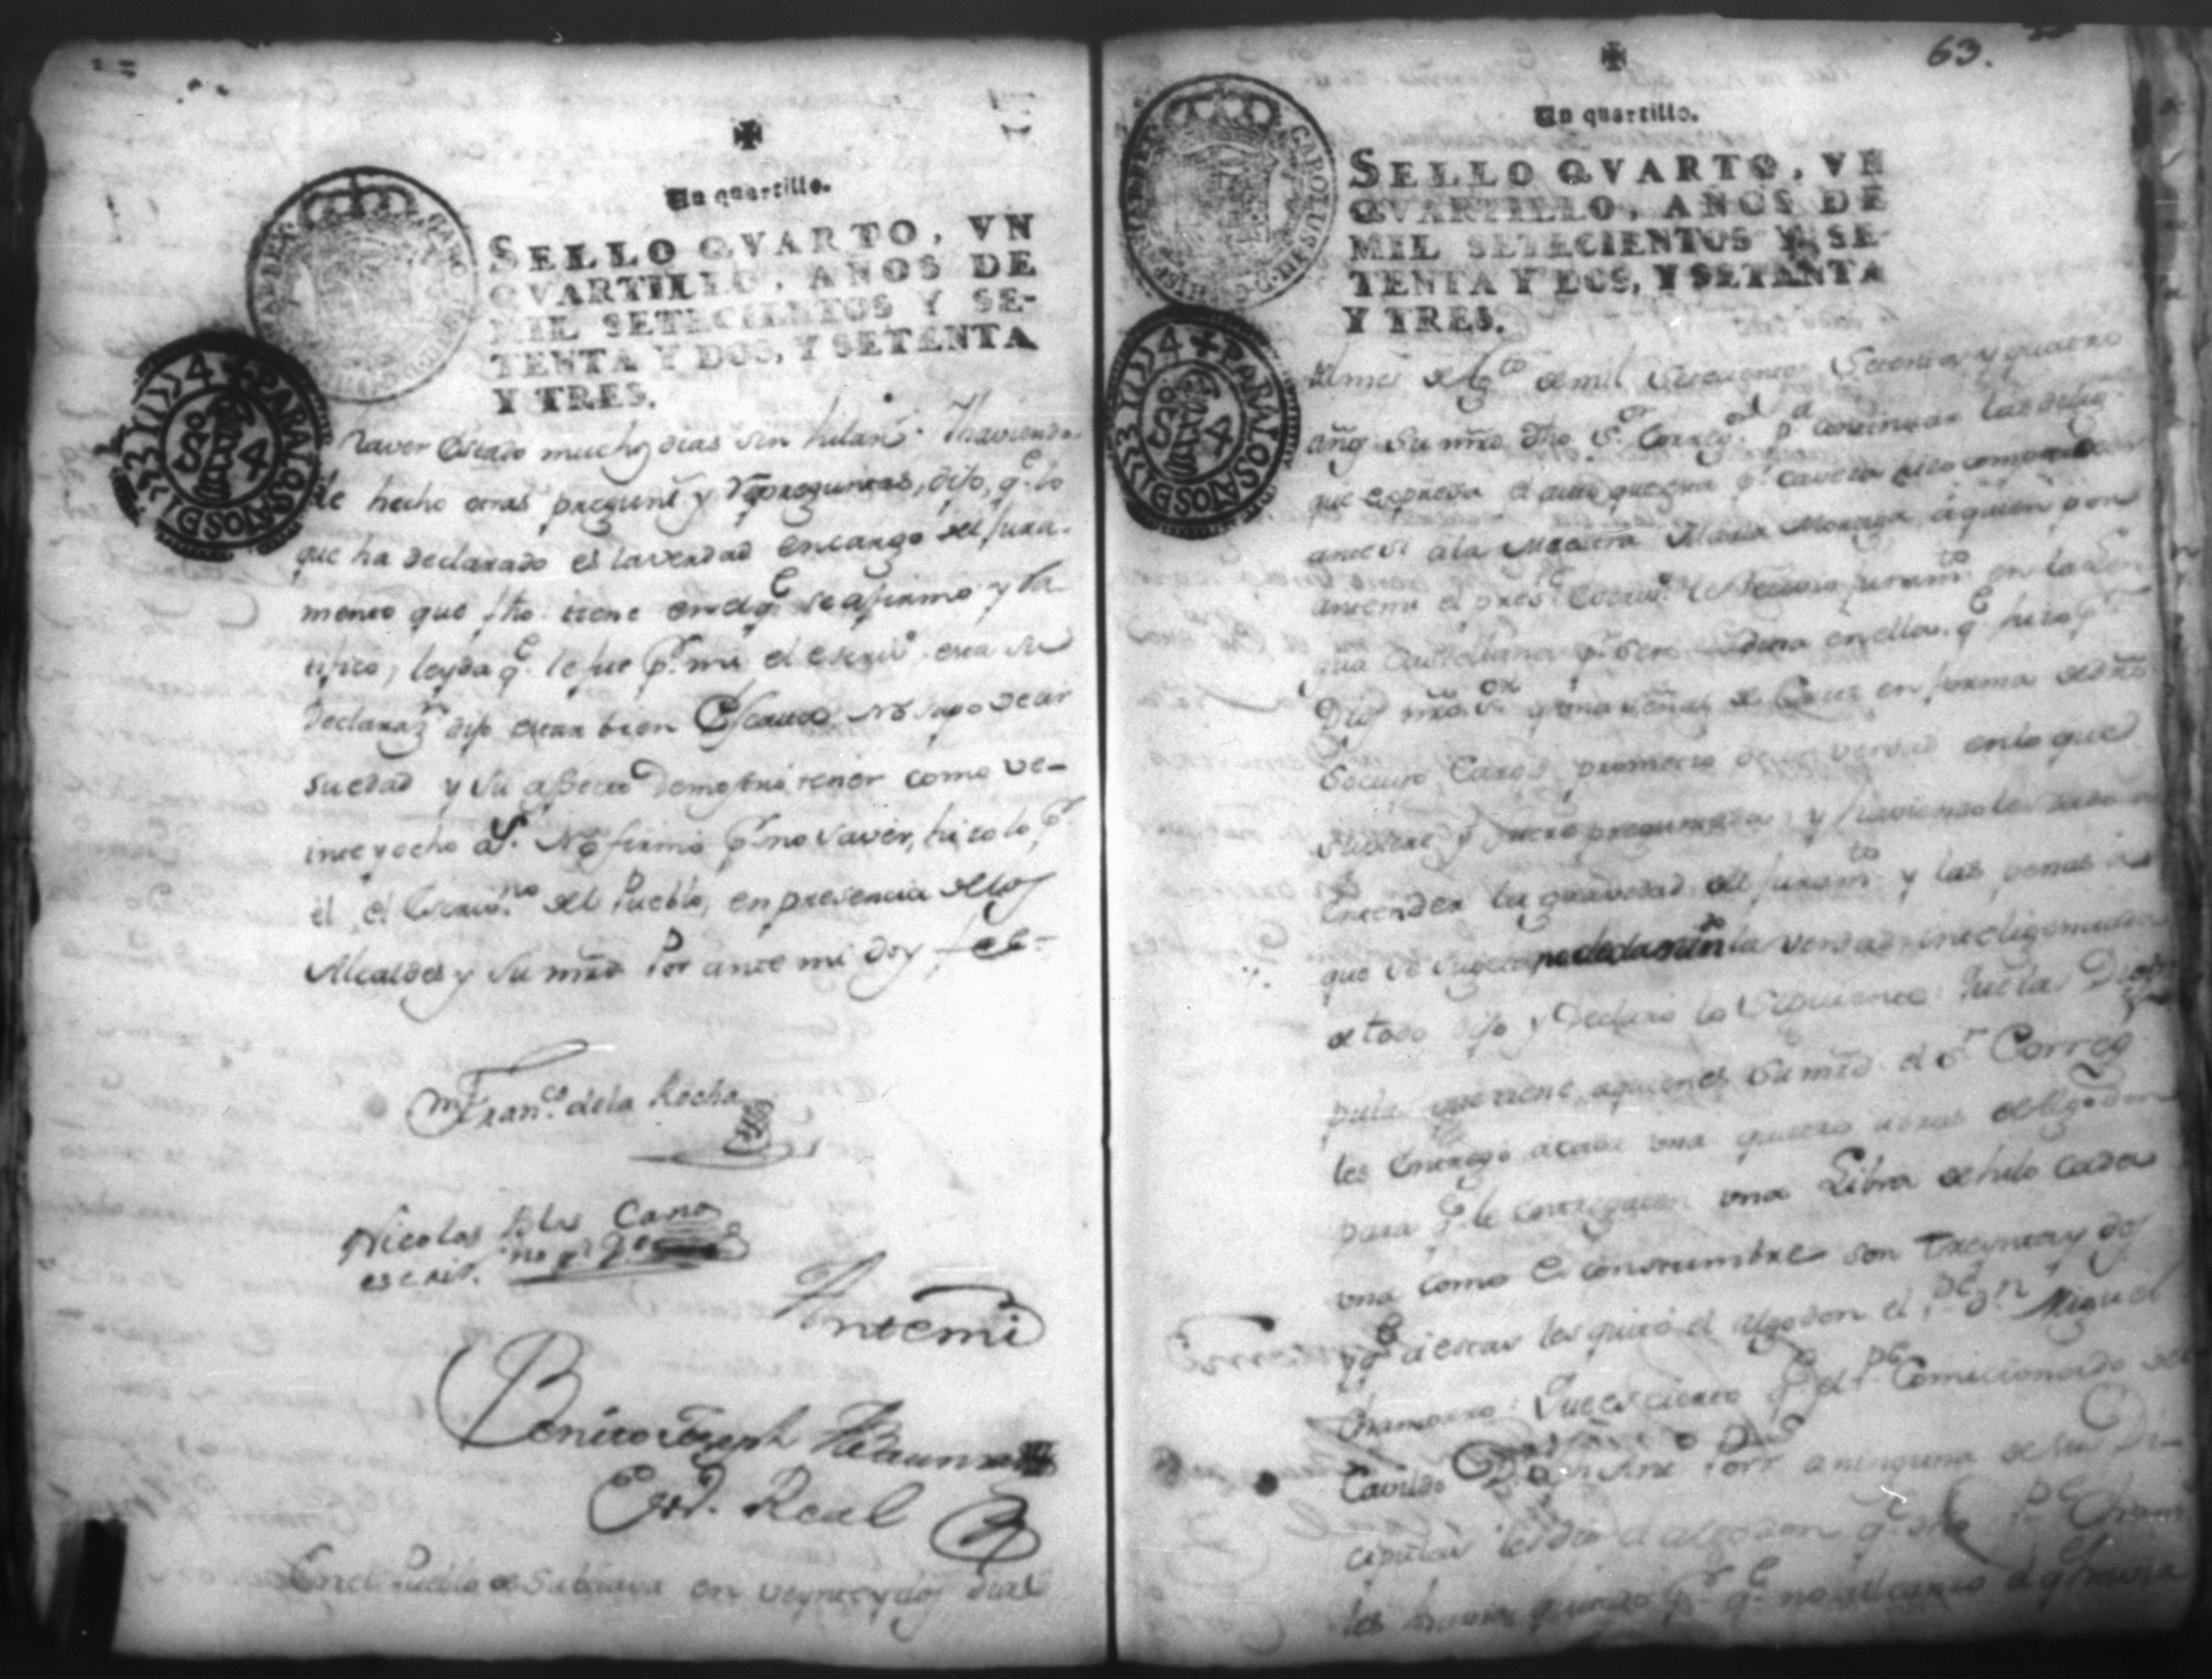 Un quartillo.
SELLO QVARTO, VN
QVARTILLO, AÑOS DE
MIL SETECIENTOS Y SE-
TENTA Y DOS, Y SETENTA
Y TRES.
haver estado muchos dias sin hilar. Y haviendo
le hecho otras pregunt.s y repreguntas, dijo, q.e lo
que ha declarado es la verdad en cargo del jura-
mento que fho tiene en el q.e se afirmo y ra
tifico, leyda q.e le fue p.r mi el escriv.o esta su
declaraz.n dijo estar bien escrito No supo decir
su edad y su aspecto demostró tener como ve-
inte y ocho a.s No firmó p.r no saver, hizolo p.r
el el Escriv.no del Pueblo, en presencia de los
Alcaldes y su mrd Por ante mi doy fee=
Fran.co de la Rocha
Nicolas Blas Cano
escriv.no
Antemi
Benito Joseph
Es.no Real
En el Pueblo de Subtiava en veynte y dos dias
63.
Un quartillo.
SELLO QVARTO, VN
QVARTILLO, AÑOS DE
MIL SETECIENTOS Y SE-
TENTA Y DOS, Y SETENTA
Y TRES.
del mes de Ag.to de mil Setecientos Setenta y quatro
años su mrd dho S.or Correg.or p.a continuar las dilig
que expresa el auto que esta p.r caveza hizo comparecer
ante si a la Maestra Maria a quien por
ante mi el pres.te Escriv.o le recivio juram.to en la len
gua Castellana p.r ser en ella q.e hizo p.r
Dios nro S.or y una señal de Cruz en forma de dro
so cuyo cargo prometio decir verdad en lo que
supiere y fuere preguntada y haviendole dado a
entender la gravedad del juram.to y las penas
que se la verdad, inteligenciada
de todo dijo y declaró lo siguiente: Que las Disci
pulas que tiene, a quienes su mrd el S.r Correg.r
les entregó a cada una quatro de Algodon
para q.e le entreguen una Libra de hilo cada
una como es constumbre son treynta y dos
y q.e a estas les quitó el algodon el P.e d.n Miguel
Chamorro: Que es cierto q.e el P.e Comicionado del
Cavildo a ninguna de sus Di-
cipulas les dio el algodon q.e dho P.e Cham
les havia quitado q.e no alcanzo